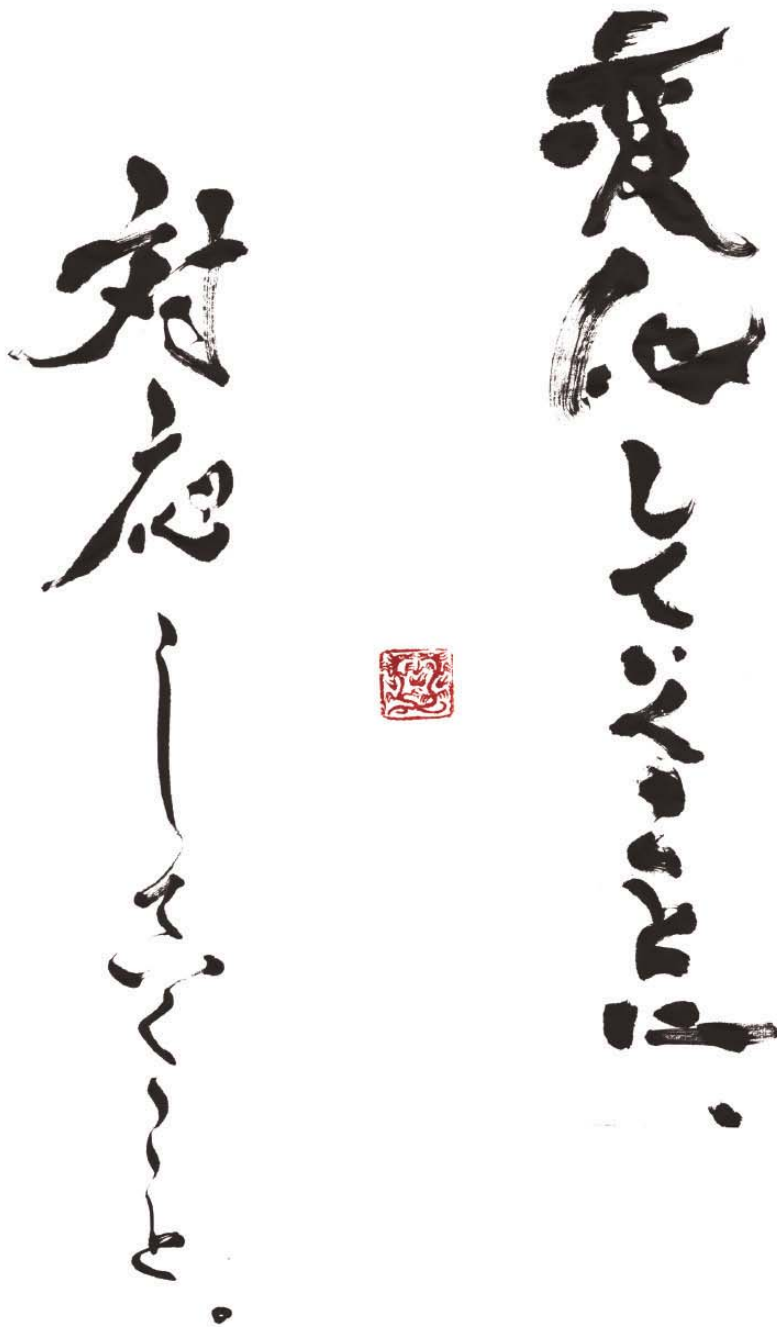 変化していくことに、
対応していくこと。